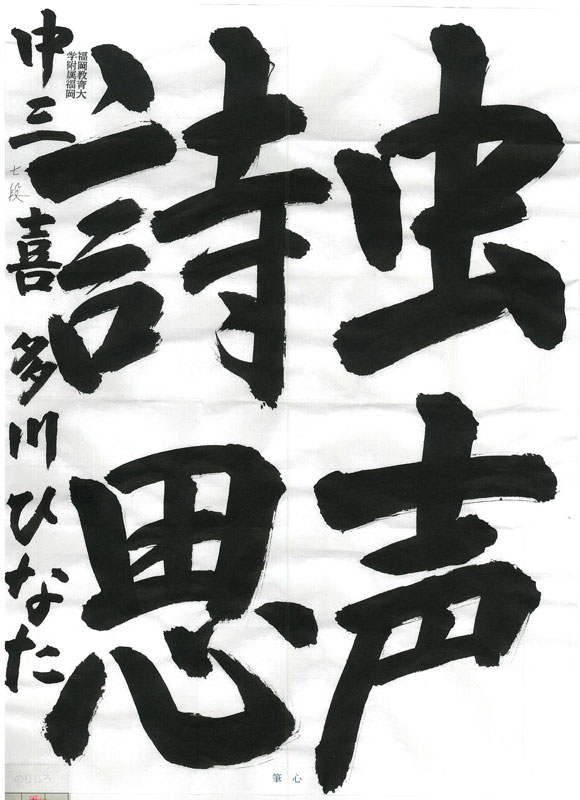 虫声
詩思
福岡教育大
学附属福岡
中三 七段 喜多川ひなた
筆心
のりしろ